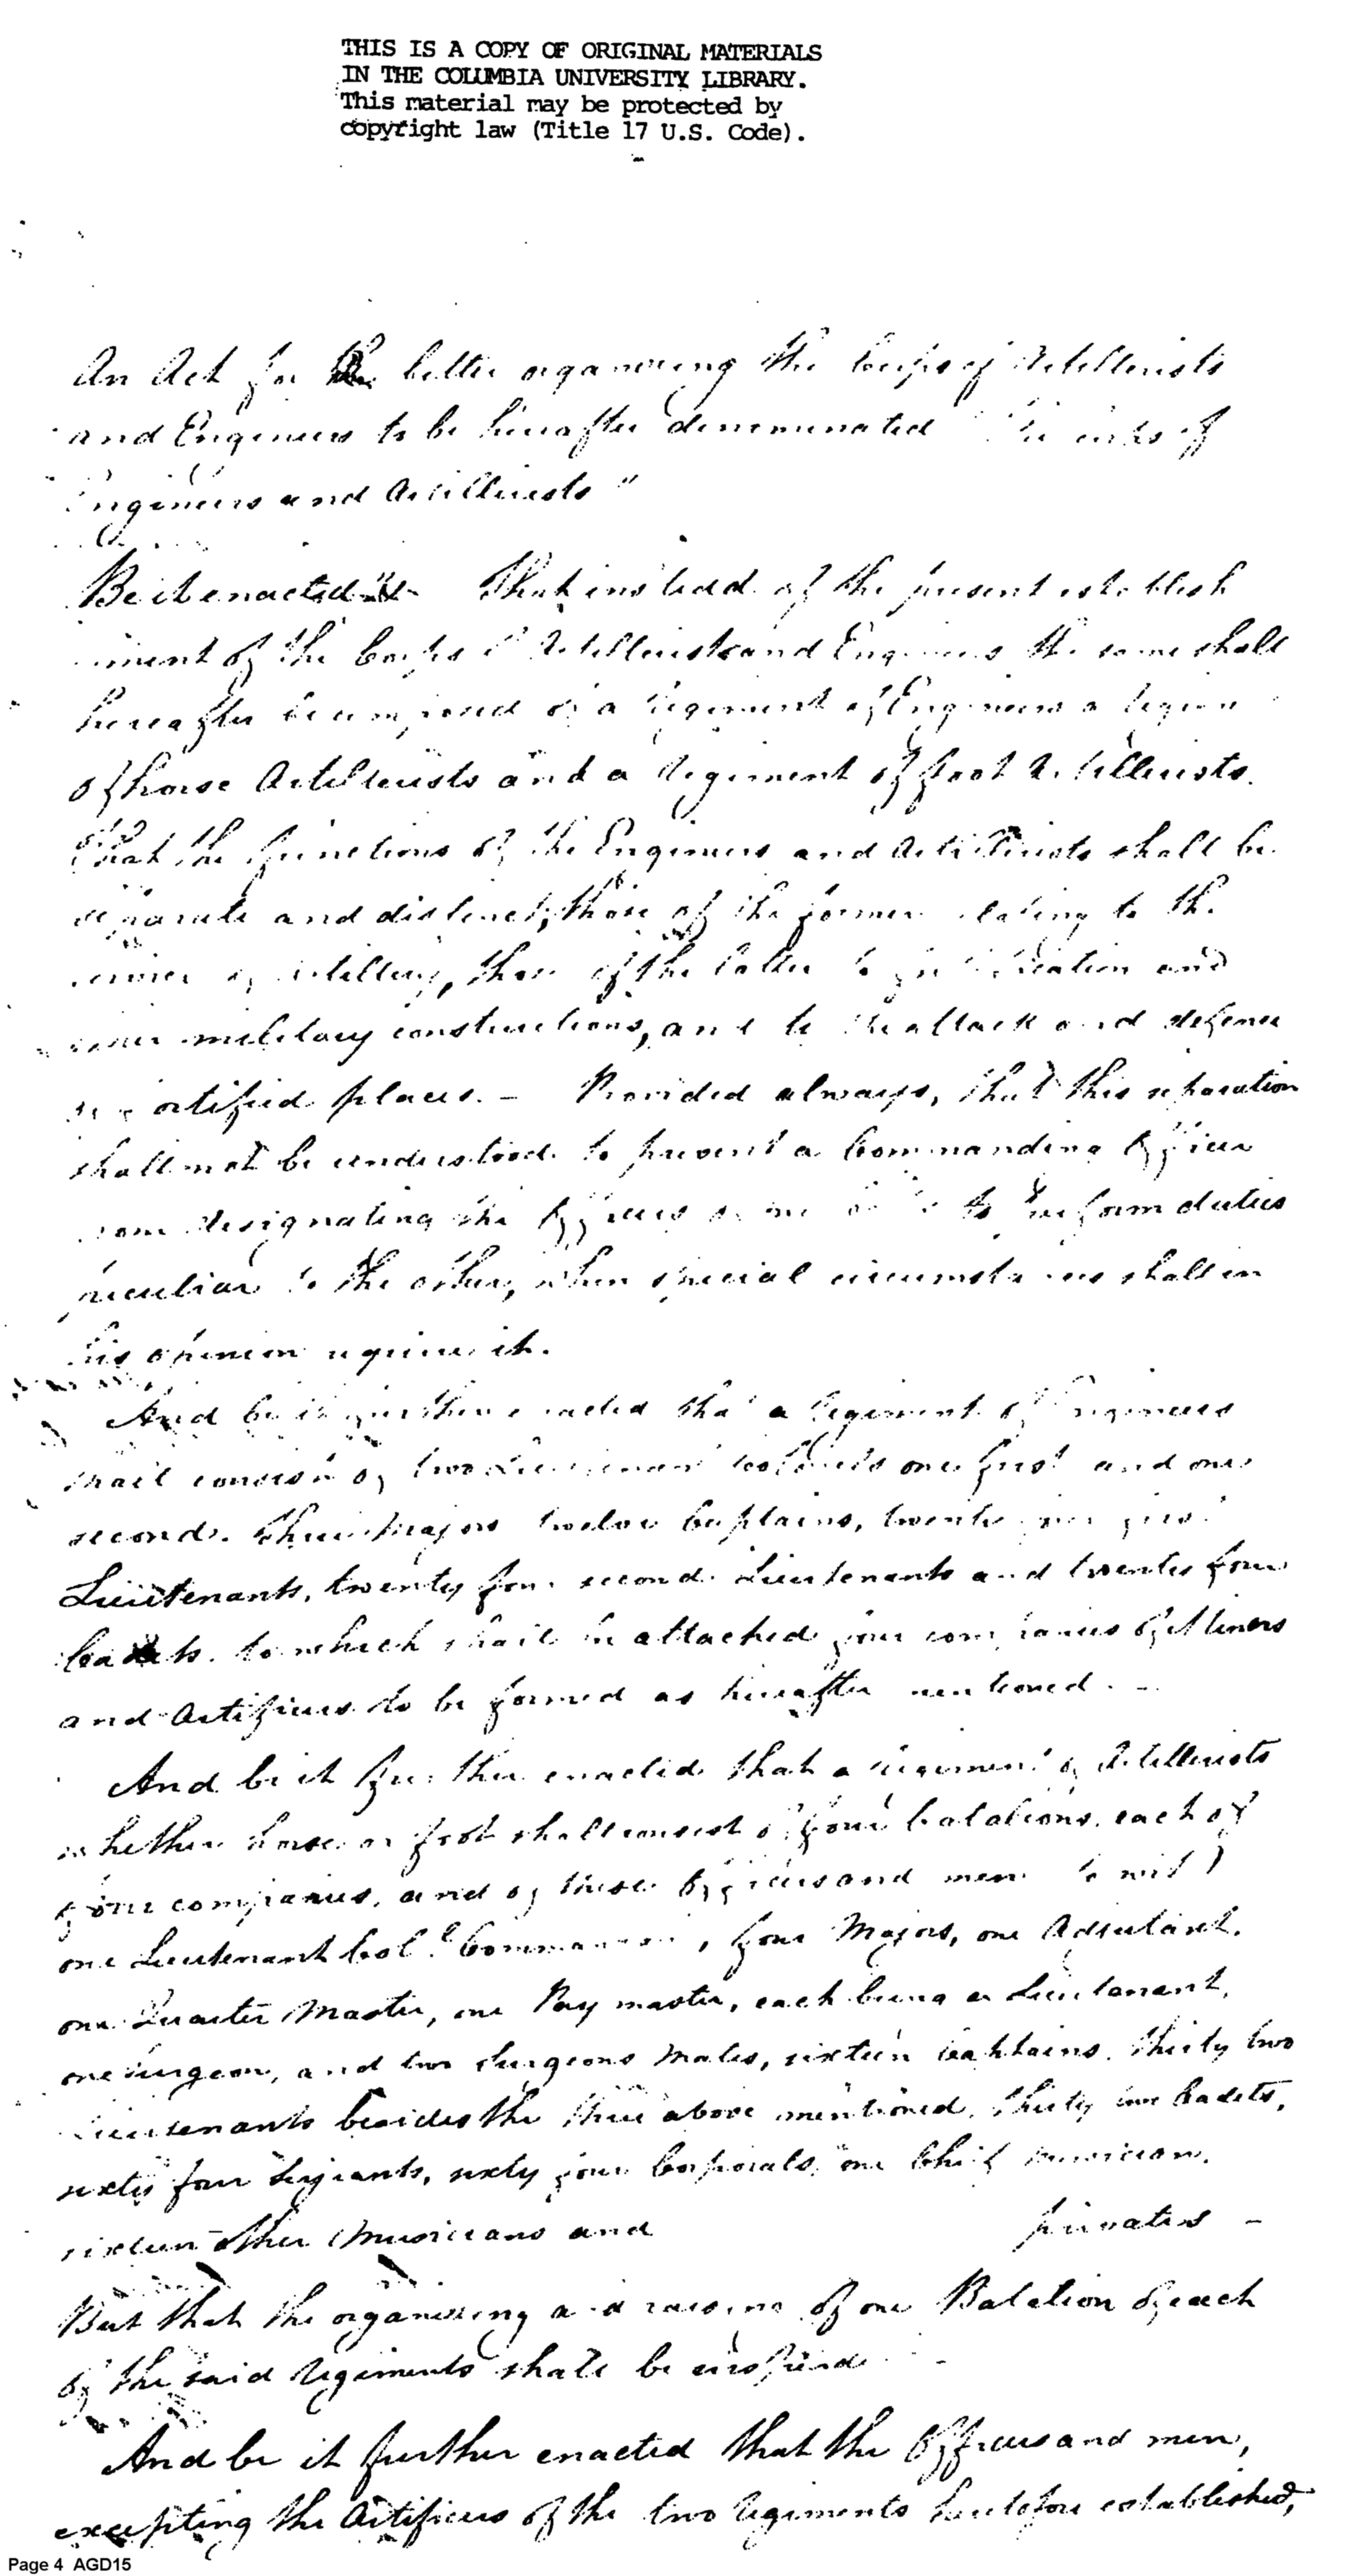 THIS IS A COPY OF ORIGINAL MATERIALS
IN THE COLUMBIA UNIVERSITY LIBRARY.
This material may be protected by
copyright law (Title 17 U.S. Code).
An Act for the better organising the Corps of Artillerists
and Engineers to be hereafter denominated The Corps of
Engineers and Artillerists"
Be it enacted &c That instead of the present establish
ment of the Corps of Artillerists and Engineers the same shall
hereafter be composed of a regiment of Engineers a legion
of horse Artillerists and a regiment of foot Artillerists.
That the functions of the Engineers and Artillerists shall be
separate and distinct, those of the former relating to the
service of artillery, those of the latter to fortification and
other military constructions, and to the attack and defence
of fortified places. — Provided always, that this separation
shall not be understood to prevent a Commanding Officer
from designating the Officers of one to perform duties
peculiar to the other, when special circumstances shall in
his opinion require it.
And be it further enacted that a regiment of Engineers
shall consist of two Lieutenant Colonels one first and one
second. three Majors twelve Captains, twenty four first
Lieutenants, twenty four second Lieutenants and twenty four
Cadets. to which shall be attached four companies of Miners
and Artificers to be formed as hereafter mentioned. —
And be it further enacted that a regiment of Artillerists
whether horse or foot shall consist of four batalions, each of
four companies, and of these Officers and men to wit)
one Lieutenant Col. Commandant, four Majors, one Adjutant.
one Quarter Master, one Pay master, each being a Lieutenant,
one surgeon, and two Surgeons Mates, sixteen Captains. thirty two
Lieutenants besides the three above mentioned. thirty two Cadets,
sixty four Serjeants, sixty four Corporals, one Chief musician.
sixteen other Musicians and privates —
But that the organising and raising of one Batalion of each
of the said regiments shall be suspended —
And be it further enacted that the Officers and men,
excepting the Artificers of the two regiments heretofore established,
Page 4 AGD15